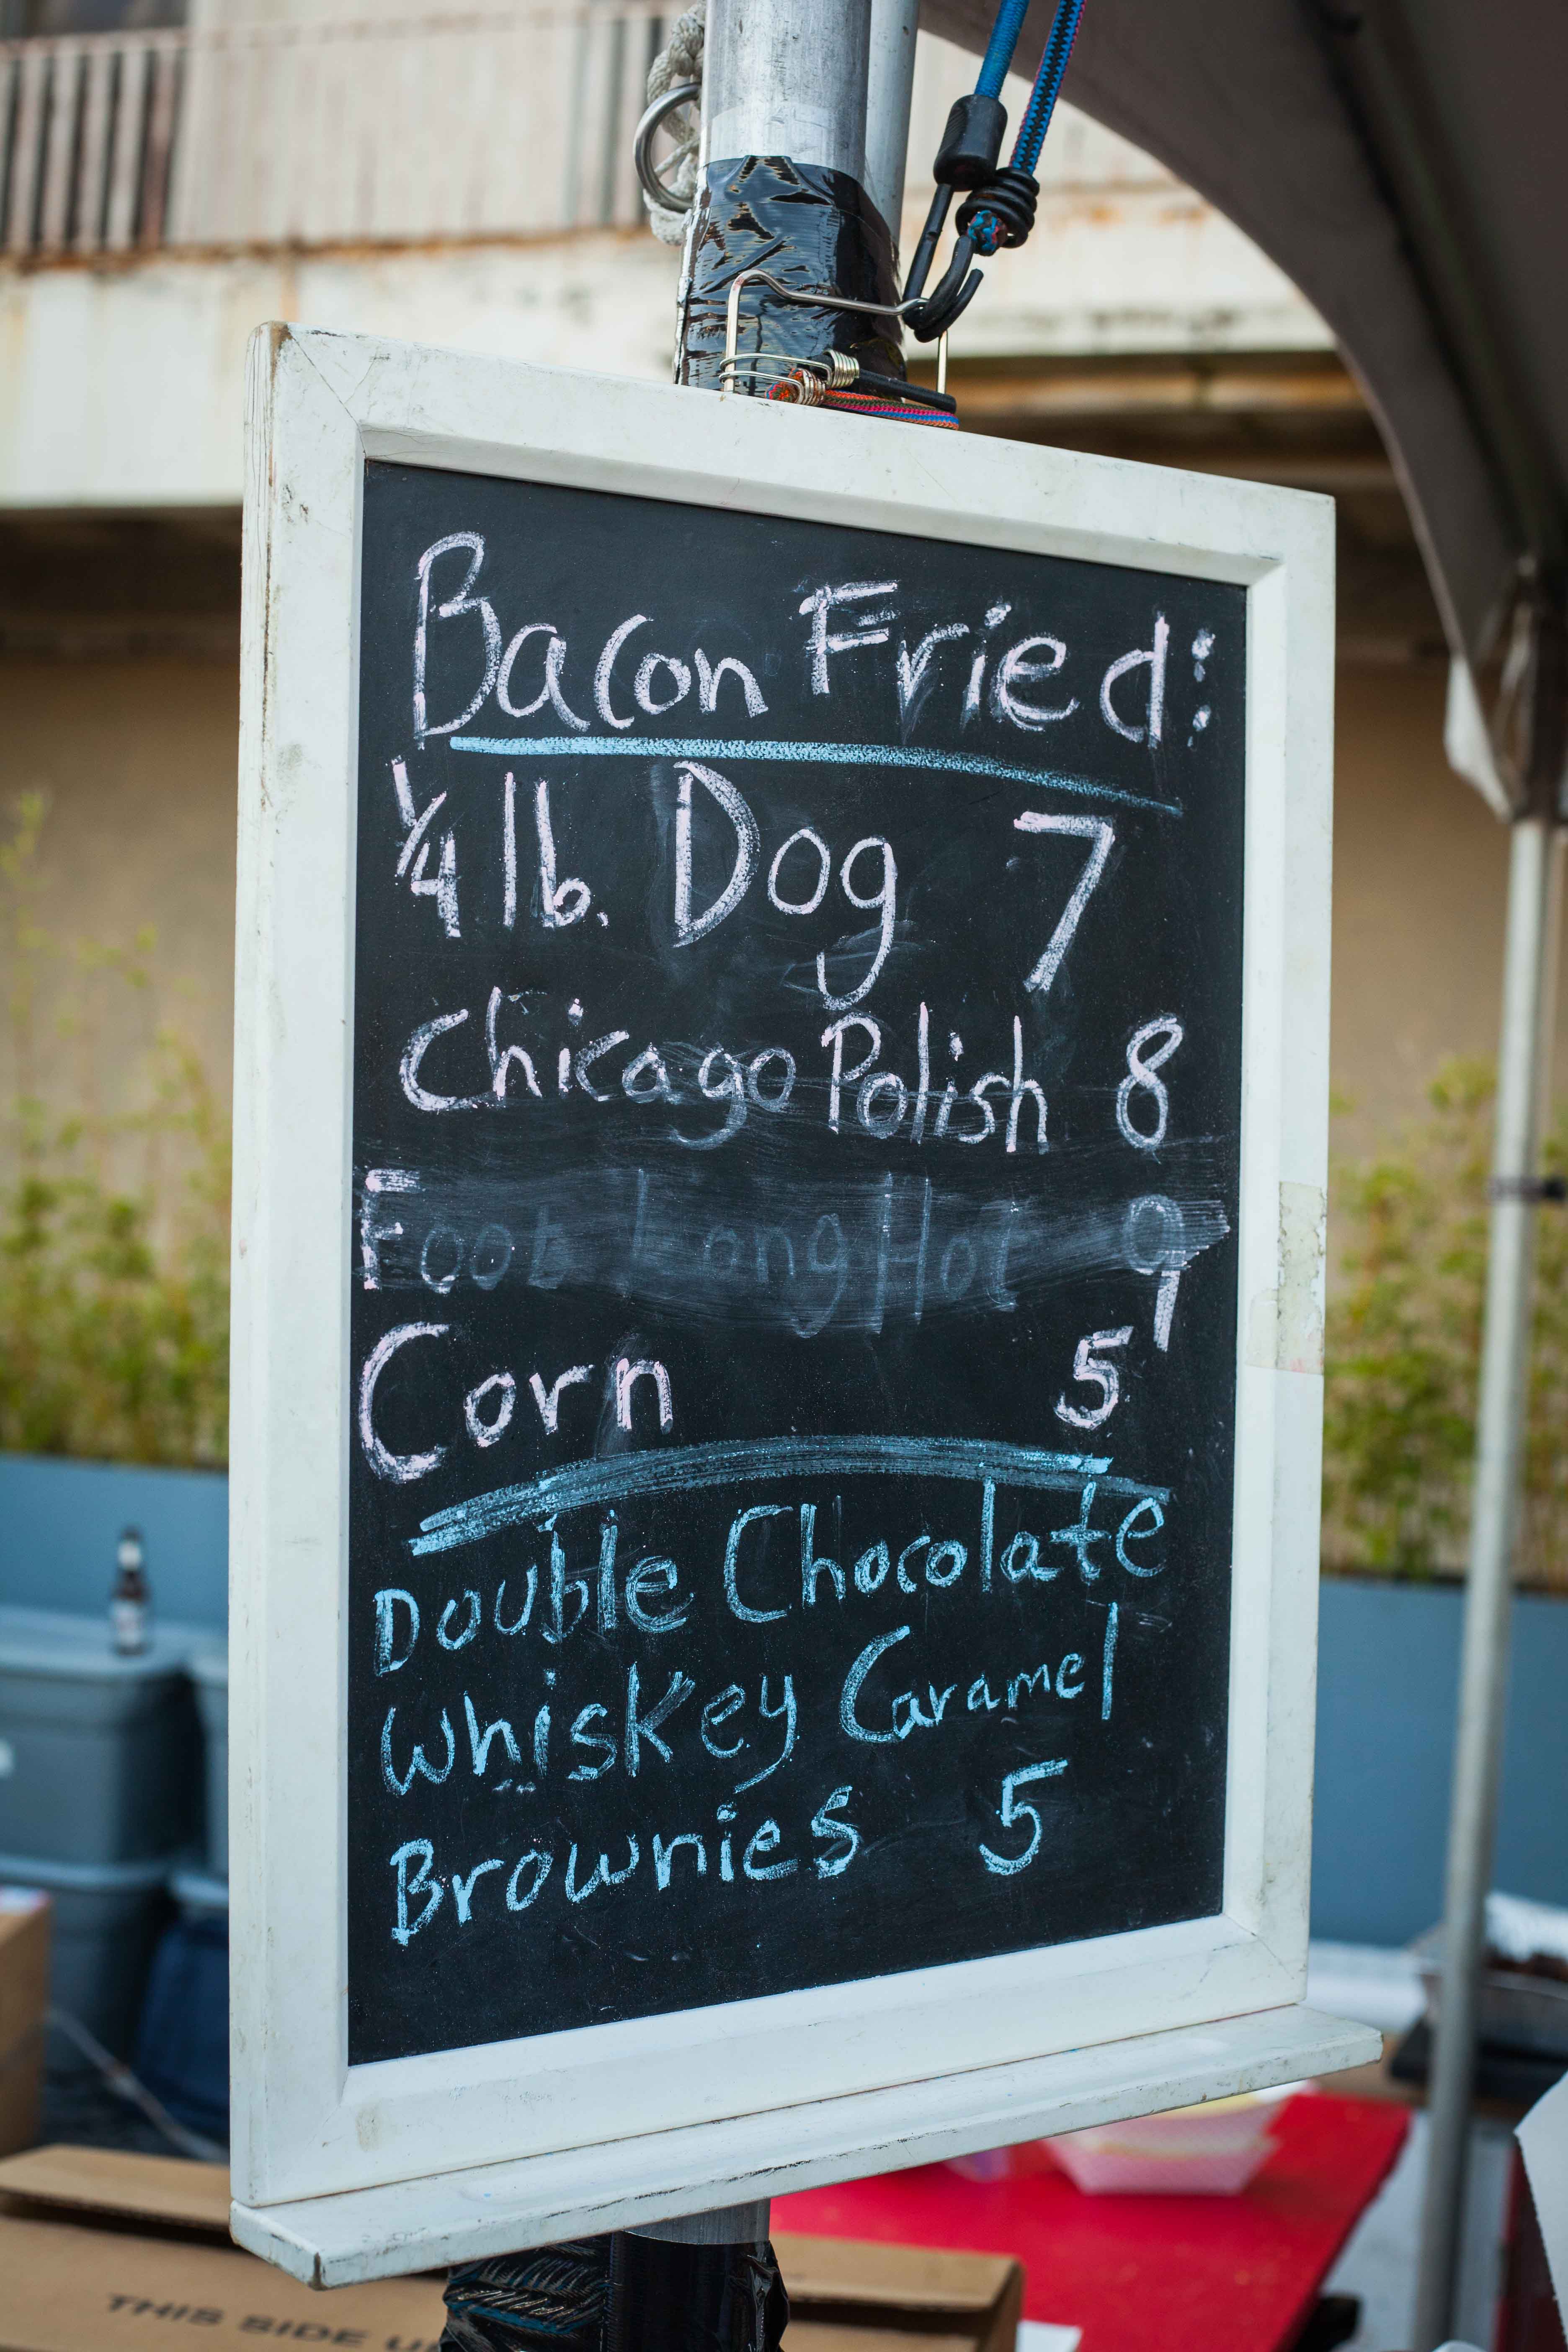 Bacon Fried:
1/4 lb. Dog 7
Chicago Polish 8
Foot Long Hot 9
Corn 5
Double Chocolate
Whiskey Caramel
Brownies 5
THIS SIDE U